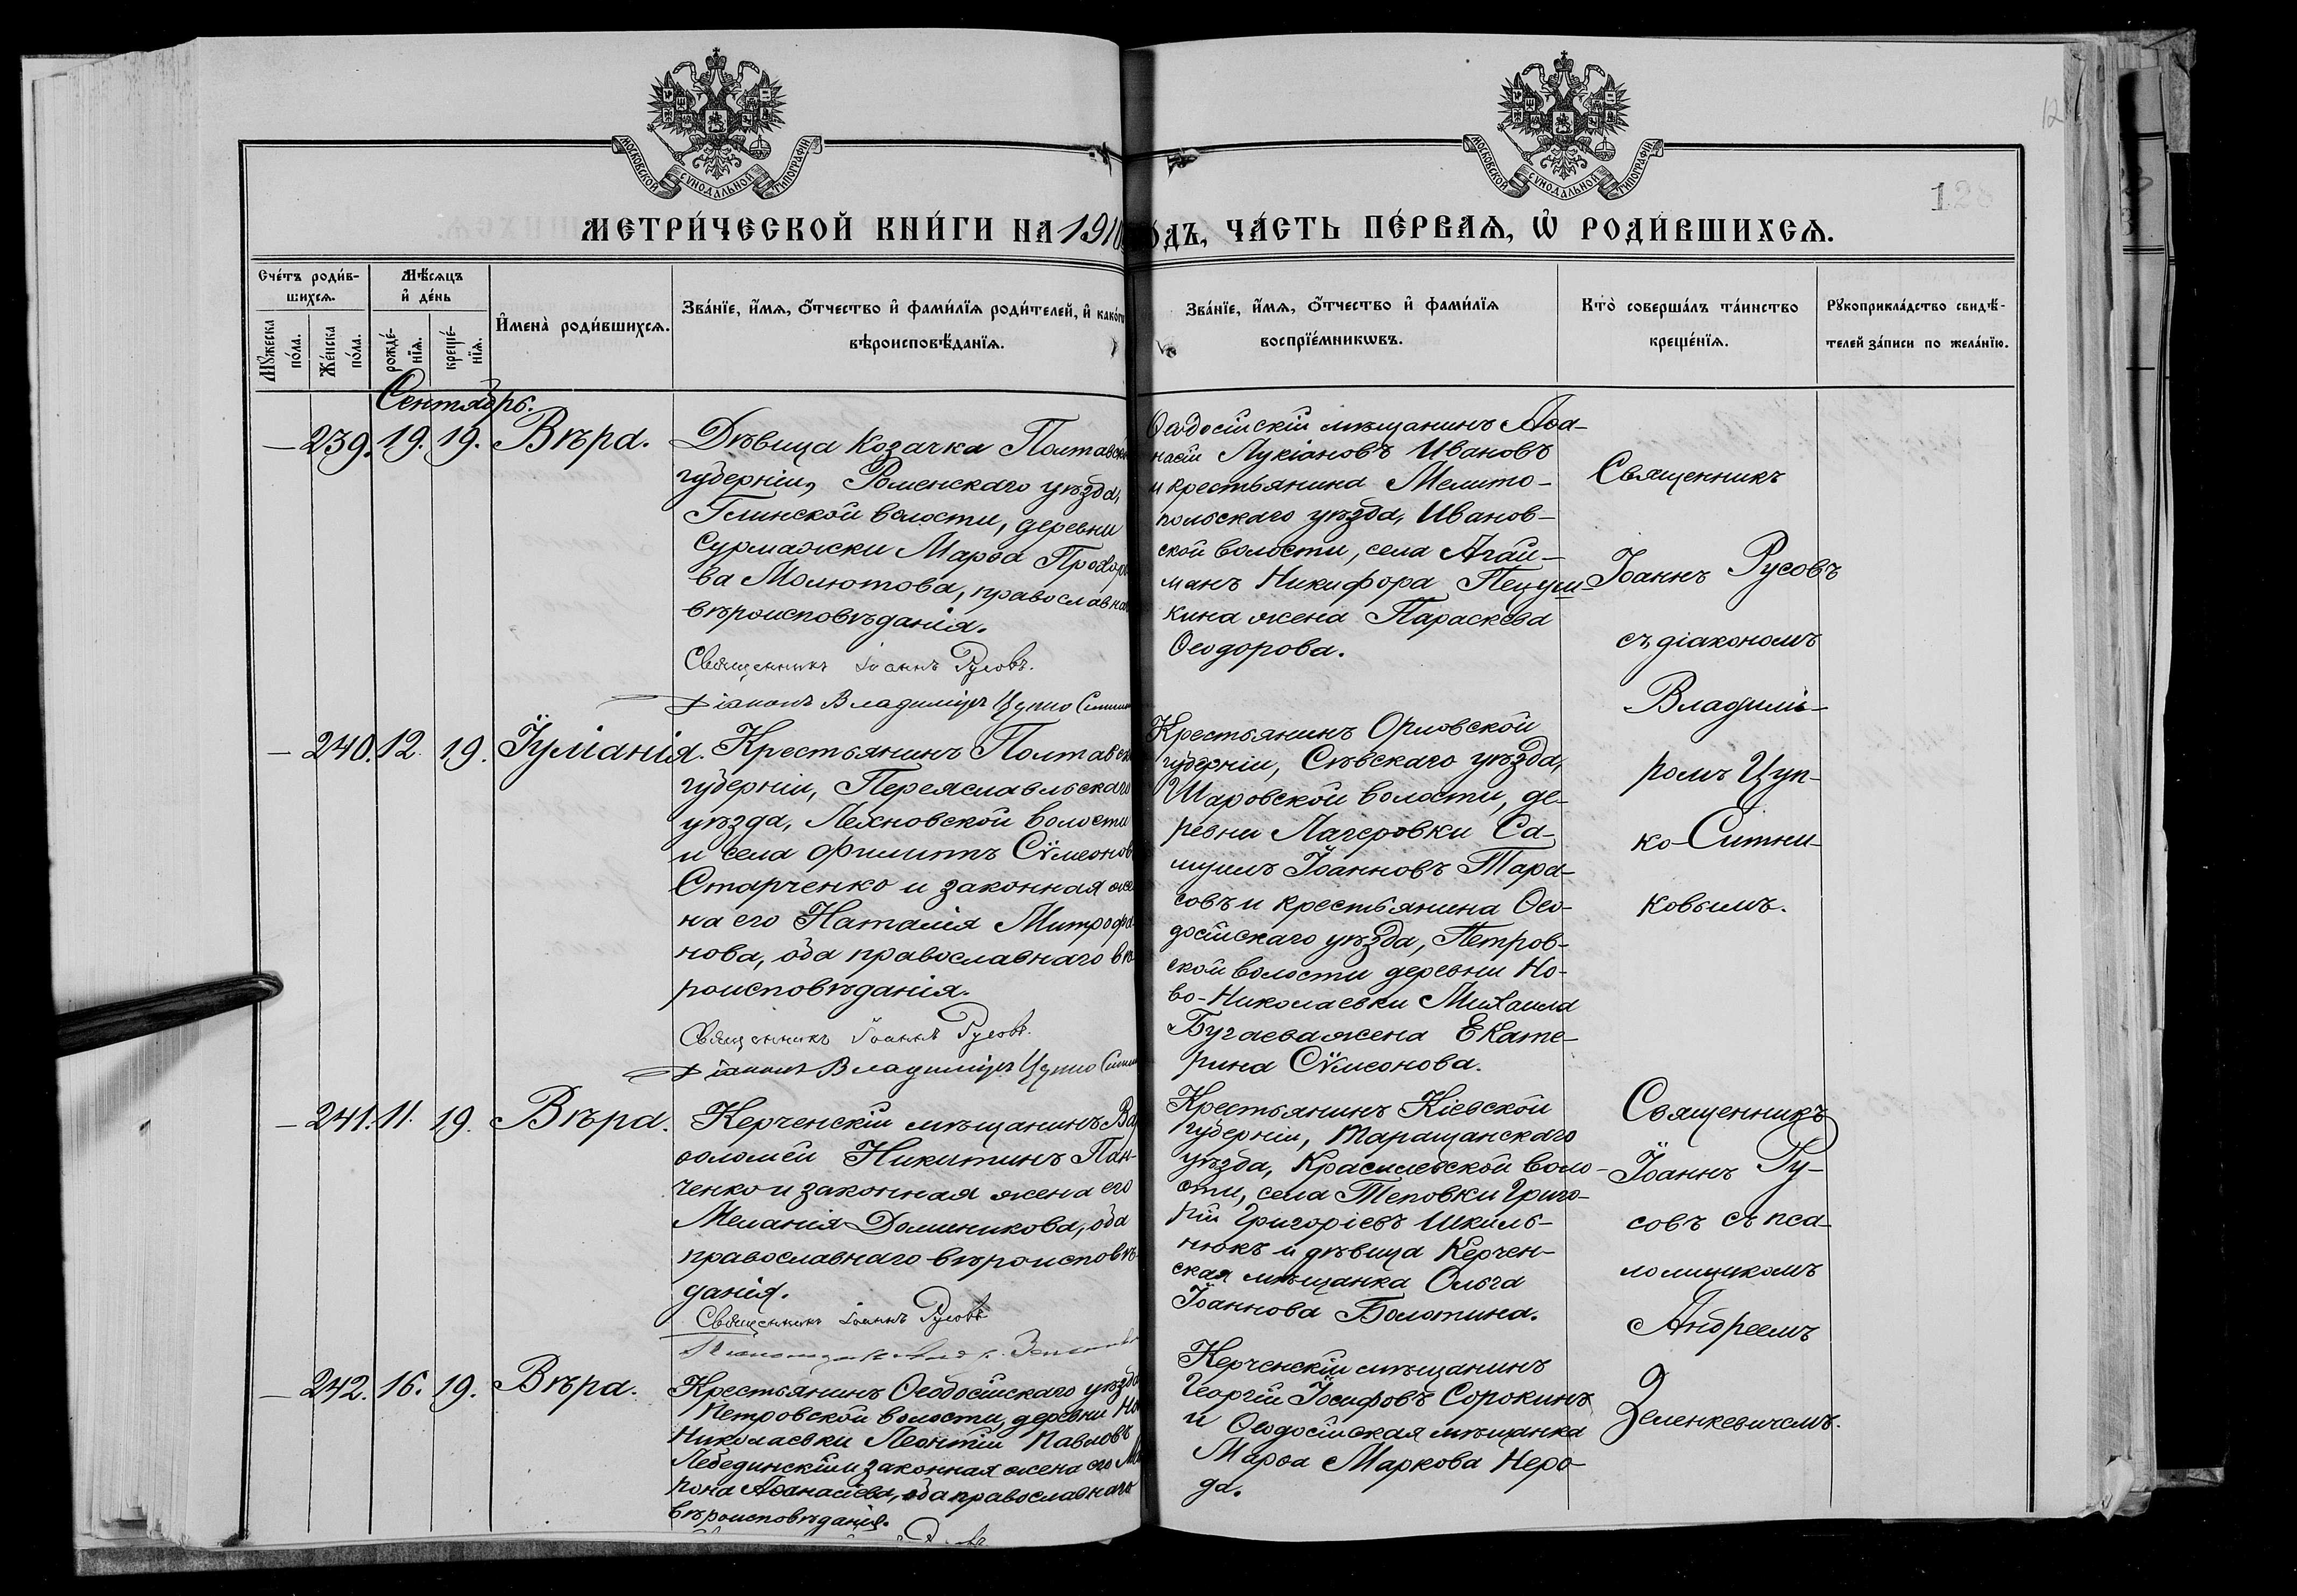 МОСКОВСКОЙ СѴНОДАЛЬНОЙ ТИПОГРАФІИ
МОСКОВСКОЙ СѴНОДАЛЬНОЙ ТИПОГРАФІИ
128
МЕТРИ́ЧЕСКОЙ КНИ́ГИ НА 1910
ОДЪ, ЧА́СТЬ ПЕ́РВАѦ, Ѡ҆ РОДИ́ВШИХСѦ.
Сче́тъ роди́в-
шихсѧ.
Мꙋжеска
по́ла.
Же́нска
по́ла.
Мѣ́сѧцъ
и҆ де́нь
рожде́-
нїѧ.
креще́-
нїѧ.
И҆мена̀ роди́вшихсѧ.
Зва́нїе, и҆́мѧ, ѻ҆́тчество и҆ фами́лїѧ роди́телей, и҆ како́гѡ
вѣроисповѣ́данїѧ.
Зва́нїе, и҆́мѧ, ѻ҆́тчество и҆ фами́лїѧ
воспрїе́мникѡвъ.
Кто̀ соверша́лъ та́инство
креще́нїѧ.
Рꙋкоприкла́дство свидѣ́-
телей за́писи по жела́нїю.
Сентябрь.
— 239. 19. 19. Вѣра.
Дѣвица козачка Полтавской
губерніи, Роменскаго уѣзда,
Глинской волости, деревни
Сурмажки Марѳа Прохоро
ва Молютова, православна
вѣроисповѣданія.
Священникъ Іоаннъ Русовъ.
Діаконъ Владиміръ Цупко Ситни
Ѳеодосійскій мѣщанинъ Аѳа-
насій Лукіановъ Ивановъ
и крестьянина Мелито-
польскаго уѣзда, Иванов-
ской волости, села Агай-
манъ Никифора Пецуш-
кина жена Параскева
Ѳеодорова.
Священникъ
Іоаннъ Русовъ
съ діакономъ
Владимі-
ромъ Цуп-
ко-Ситни-
ковымъ.
— 240. 12. 19. Іуліанія.
Крестьянинъ Полтавск
губерніи, Переяславльскаго
уѣзда, Леляновской волости
и села Филиппъ Сѵмеонов
Старченко и законная же
на его Наталія Митрофа
нова, оба православнаго вѣ
роисповѣданія.
Священникъ Іоаннъ Русовъ.
Діаконъ Владиміръ Цупко Ситни
Крестьянинъ Орловской
губерніи, Сѣвскаго уѣзда,
Шаровской волости, де-
ревни Лагеровки Са-
муилъ Іоанновъ Тара-
совъ и крестьянина Ѳео-
досійскаго уѣзда, Петров-
ской волости деревни Но-
во-Николаевки Михаила
Бугаева жена Екате-
рина Сѵмеонова.
— 241. 11. 19. Вѣра.
Керченскій мѣщанинъ Вар
ѳоломей Никитинъ Пан-
ченко и законная жена его
Меланія Доминикова, оба
православнаго вѣроисповѣ-
данія.
Священникъ Іоаннъ Русовъ
Крестьянинъ Кіевской
губерніи, Таращанскаго
уѣзда, Красиловской воло-
сти, села Теповки Григо-
рій Григоріевъ Шкиль-
нюкъ и дѣвица Керчен-
ская мѣщанка Ольга
Іоаннова Болотина.
Священникъ
Іоаннъ Ру-
совъ съ пса-
ломщикомъ
Андреемъ
Зеленкевичемъ.
— 242. 16. 19. Вѣра.
Крестьянинъ Ѳеодосійскаго уѣзда
Петровской волости, деревни Но
Николаевки Леонтій Павловъ
Лебединскій и законная жена его Ма
рона Аѳанасіева, оба православнаго
вѣроисповѣданія.
Керченскій мѣщанинъ
Георгій Іосифовъ Сорокинъ
и Ѳеодосійская мѣщанка
Марѳа Маркова Неро-
да.